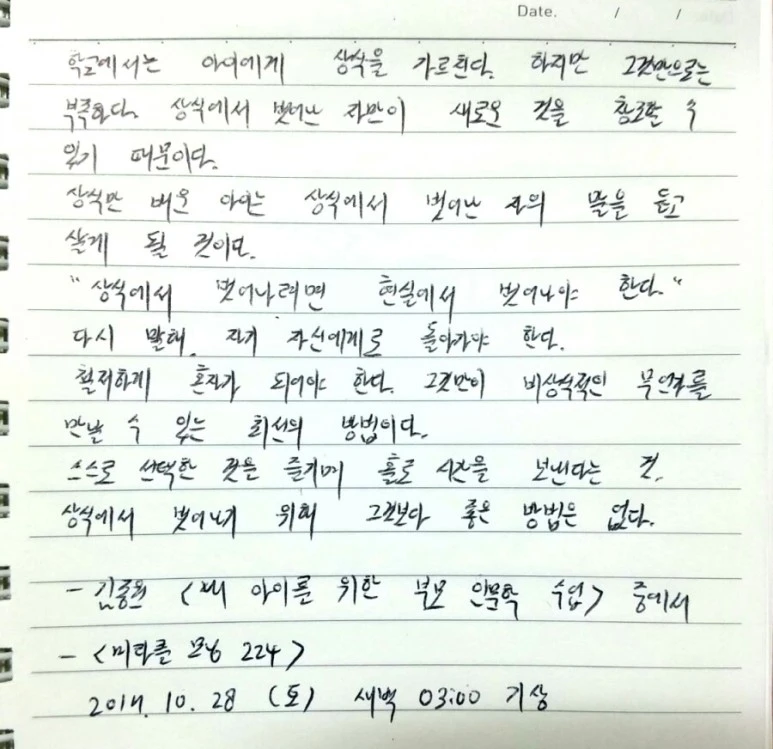 Date. / /
학교에서는 아이에게 상식을 가르친다. 하지만 그것만으로는
부족하다. 상식에서 벗어난 자만이 새로운 것을 창조할 수
있기 때문이다.
상식만 배운 아이는 상식에서 벗어난 자의 말을 듣고
살게 될 것이다.
"상식에서 벗어나려면 현실에서 벗어나야 한다."
다시 말해, 자기 자신에게로 돌아가야 한다.
철저하게 혼자가 되어야 한다. 그것만이 비상식적인 무언가를
만날 수 있는 최선의 방법이다.
스스로 선택한 것을 즐기며 홀로 시간을 보낸다는 것.
상식에서 벗어나기 위해 그것보다 좋은 방법은 없다.
- 김종원 <내 아이를 위한 부모 인문학 수업> 중에서
- <미라클 모닝 224>
2017. 10. 28 (토) 새벽 03:00 기상